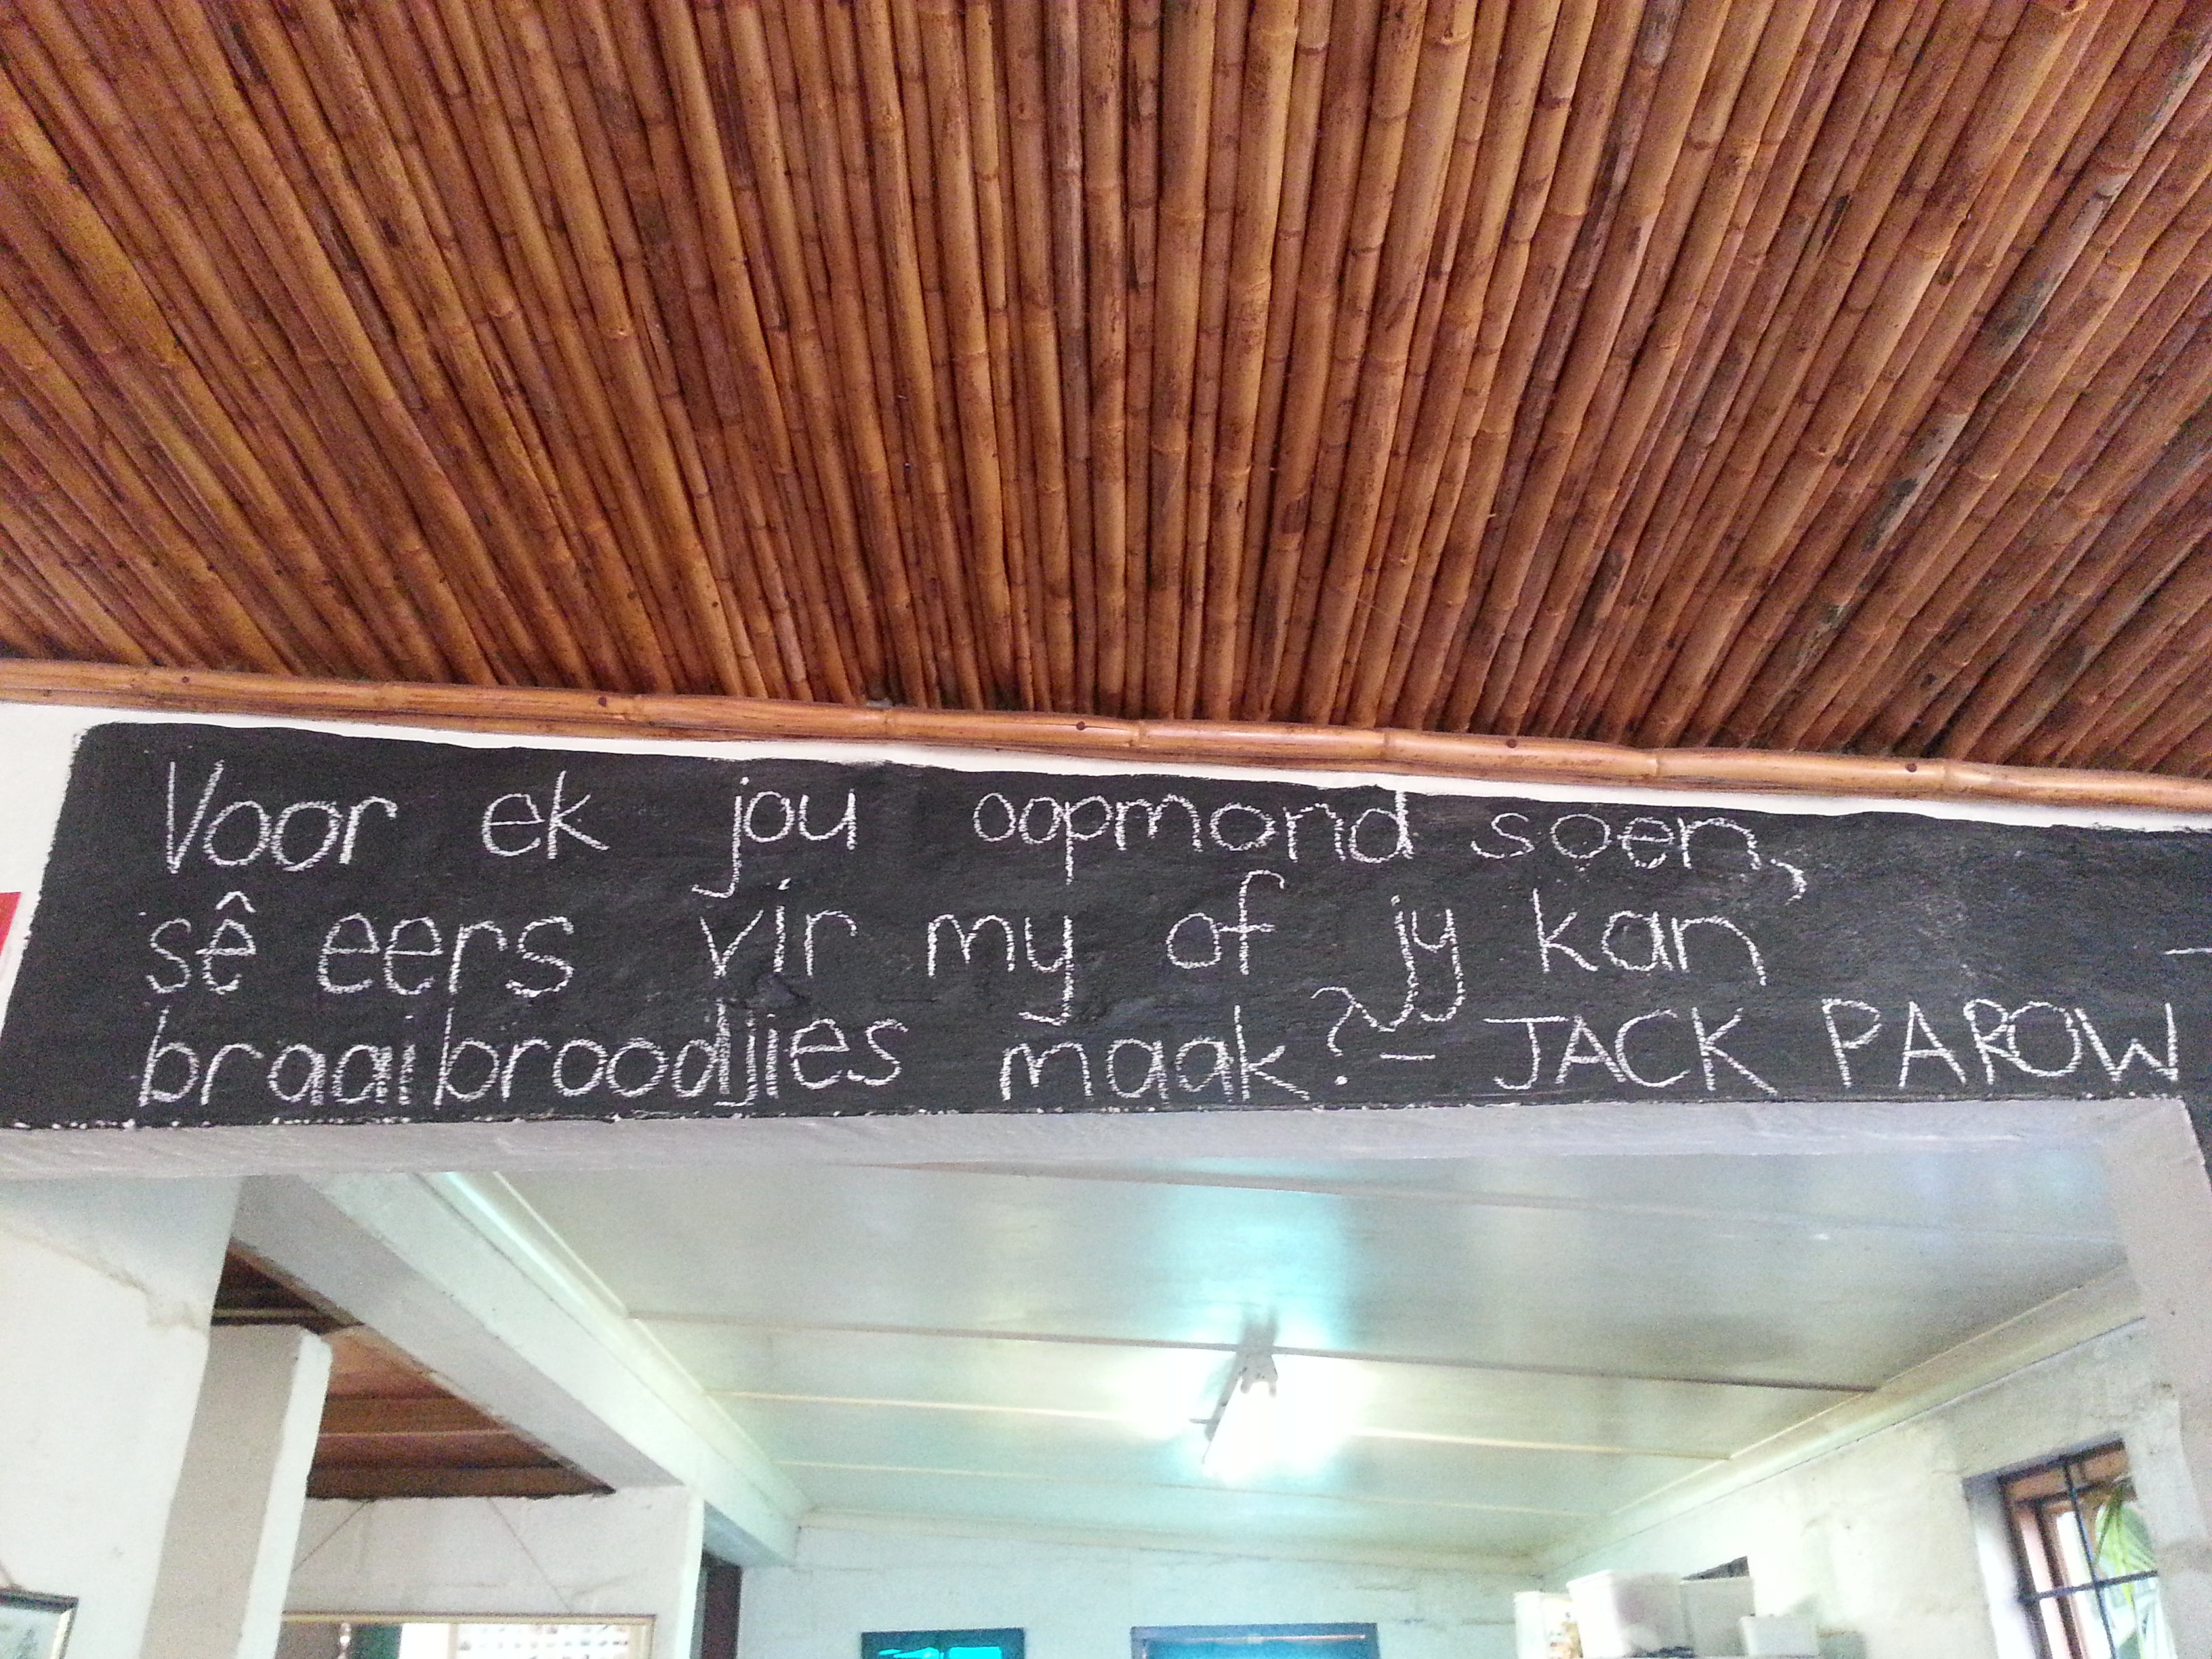 Voor ek jou oopmond soen,
sê eers vir my of jy kan
braaibroodjies maak? - JACK PAROW